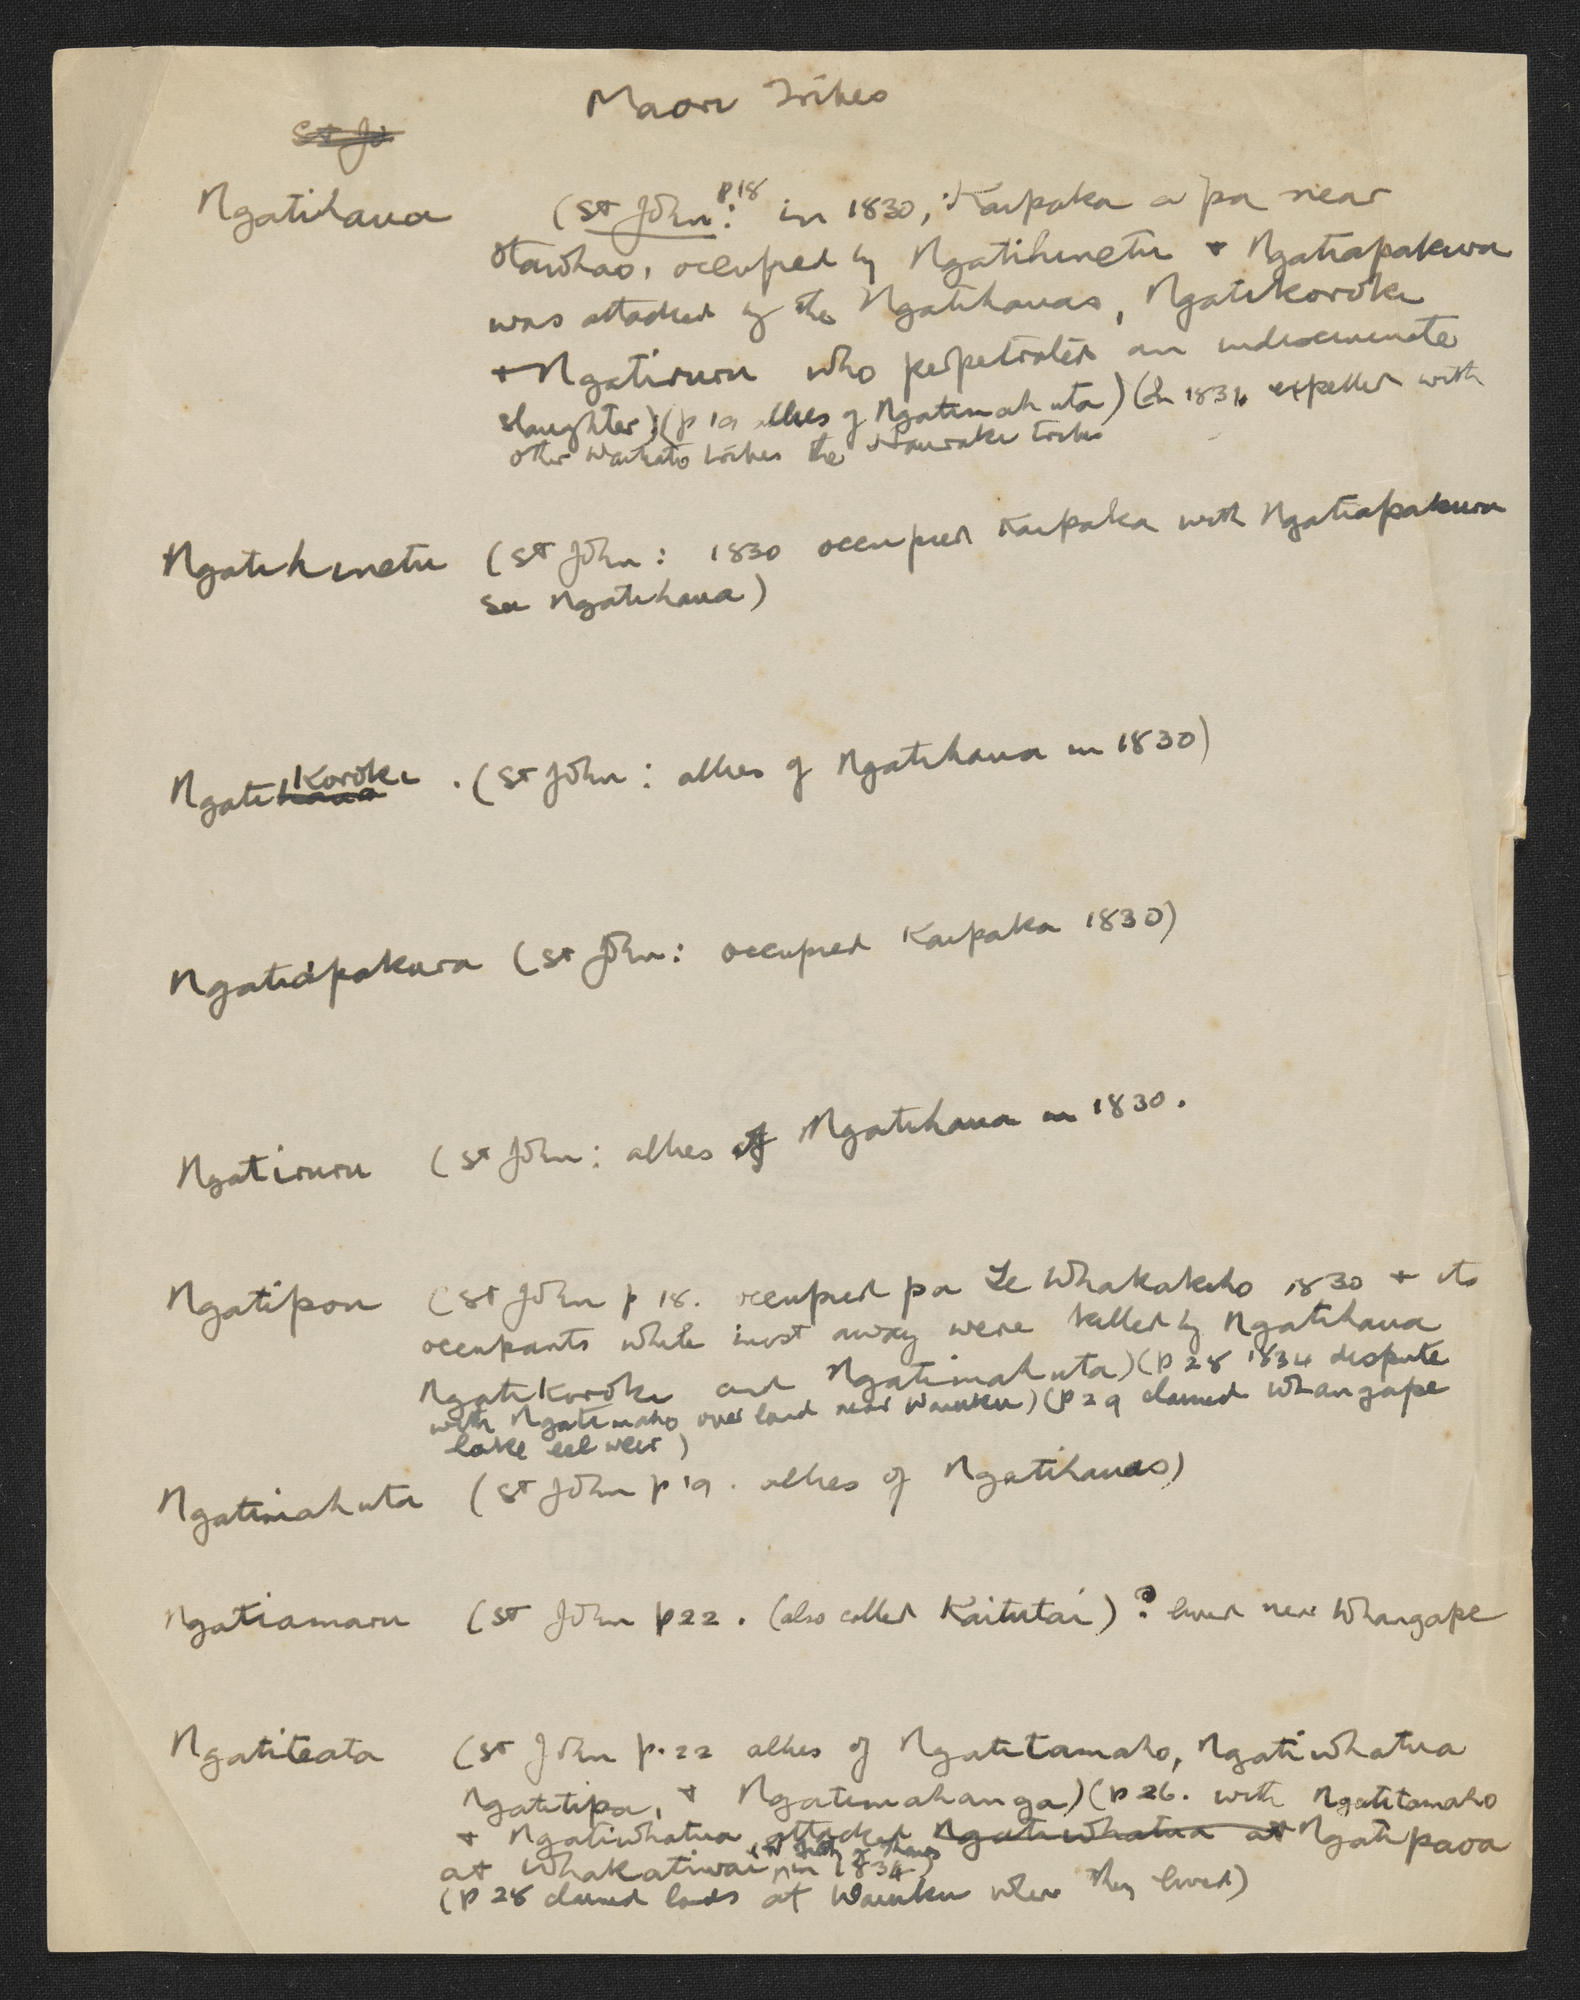 Maori Tribes
St Jo
Ngatihaua (St John: p18 in 1830, Kaipaka a pa near
Otawhao, occupied by Ngatihinetu + Ngatiapakura
was attacked by the Ngatihauas, Ngatikoroki
+ Ngatiruru who perpetrated an indiscriminate
slaughter) (p 19 allies of Ngatimahuta) (In 1834 expelled with
other Waikato tribes the Hauraki tribes
Ngatihinetu (St John: 1830 occupied Kaipaka with Ngatiapakura
See Ngatihaua)
Ngatihaua Koroki . (St John: allies of Ngatihaua in 1830)
Ngatiapakura (St John: occupied Kaipaka 1830)
Ngatiruru (St John: allies of Ngatihaua in 1830.
Ngatipou (St John p 18. occupied pa Te Whakakeho 1830 + its
occupants while most away were killed by Ngatihaua
NgatiKoroki and Ngatimahuta) (p 28 1834 dispute
with Ngatimaho over land near Waiuku) (p 29 claimed Whangape
lake eel weir)
Ngatimahuta (St John p 19. allies of Ngatihauas)
Ngatiamaru (St John p22. (also called Kaitutai) ? lived near Whangape
Ngatiteata (St John p.22 allies of Ngatitamaho, Ngatiwhatua
Ngatitipa, + Ngatimahanga) (p 26. with Ngatitamaho
+ Ngatiwhatua, attacked Ngatiwhatua at Ngatipaoa
at Whakatiwai (N Firth of Thames) in 1834)
(p 28 claimed lands at Waiuku where they lived)